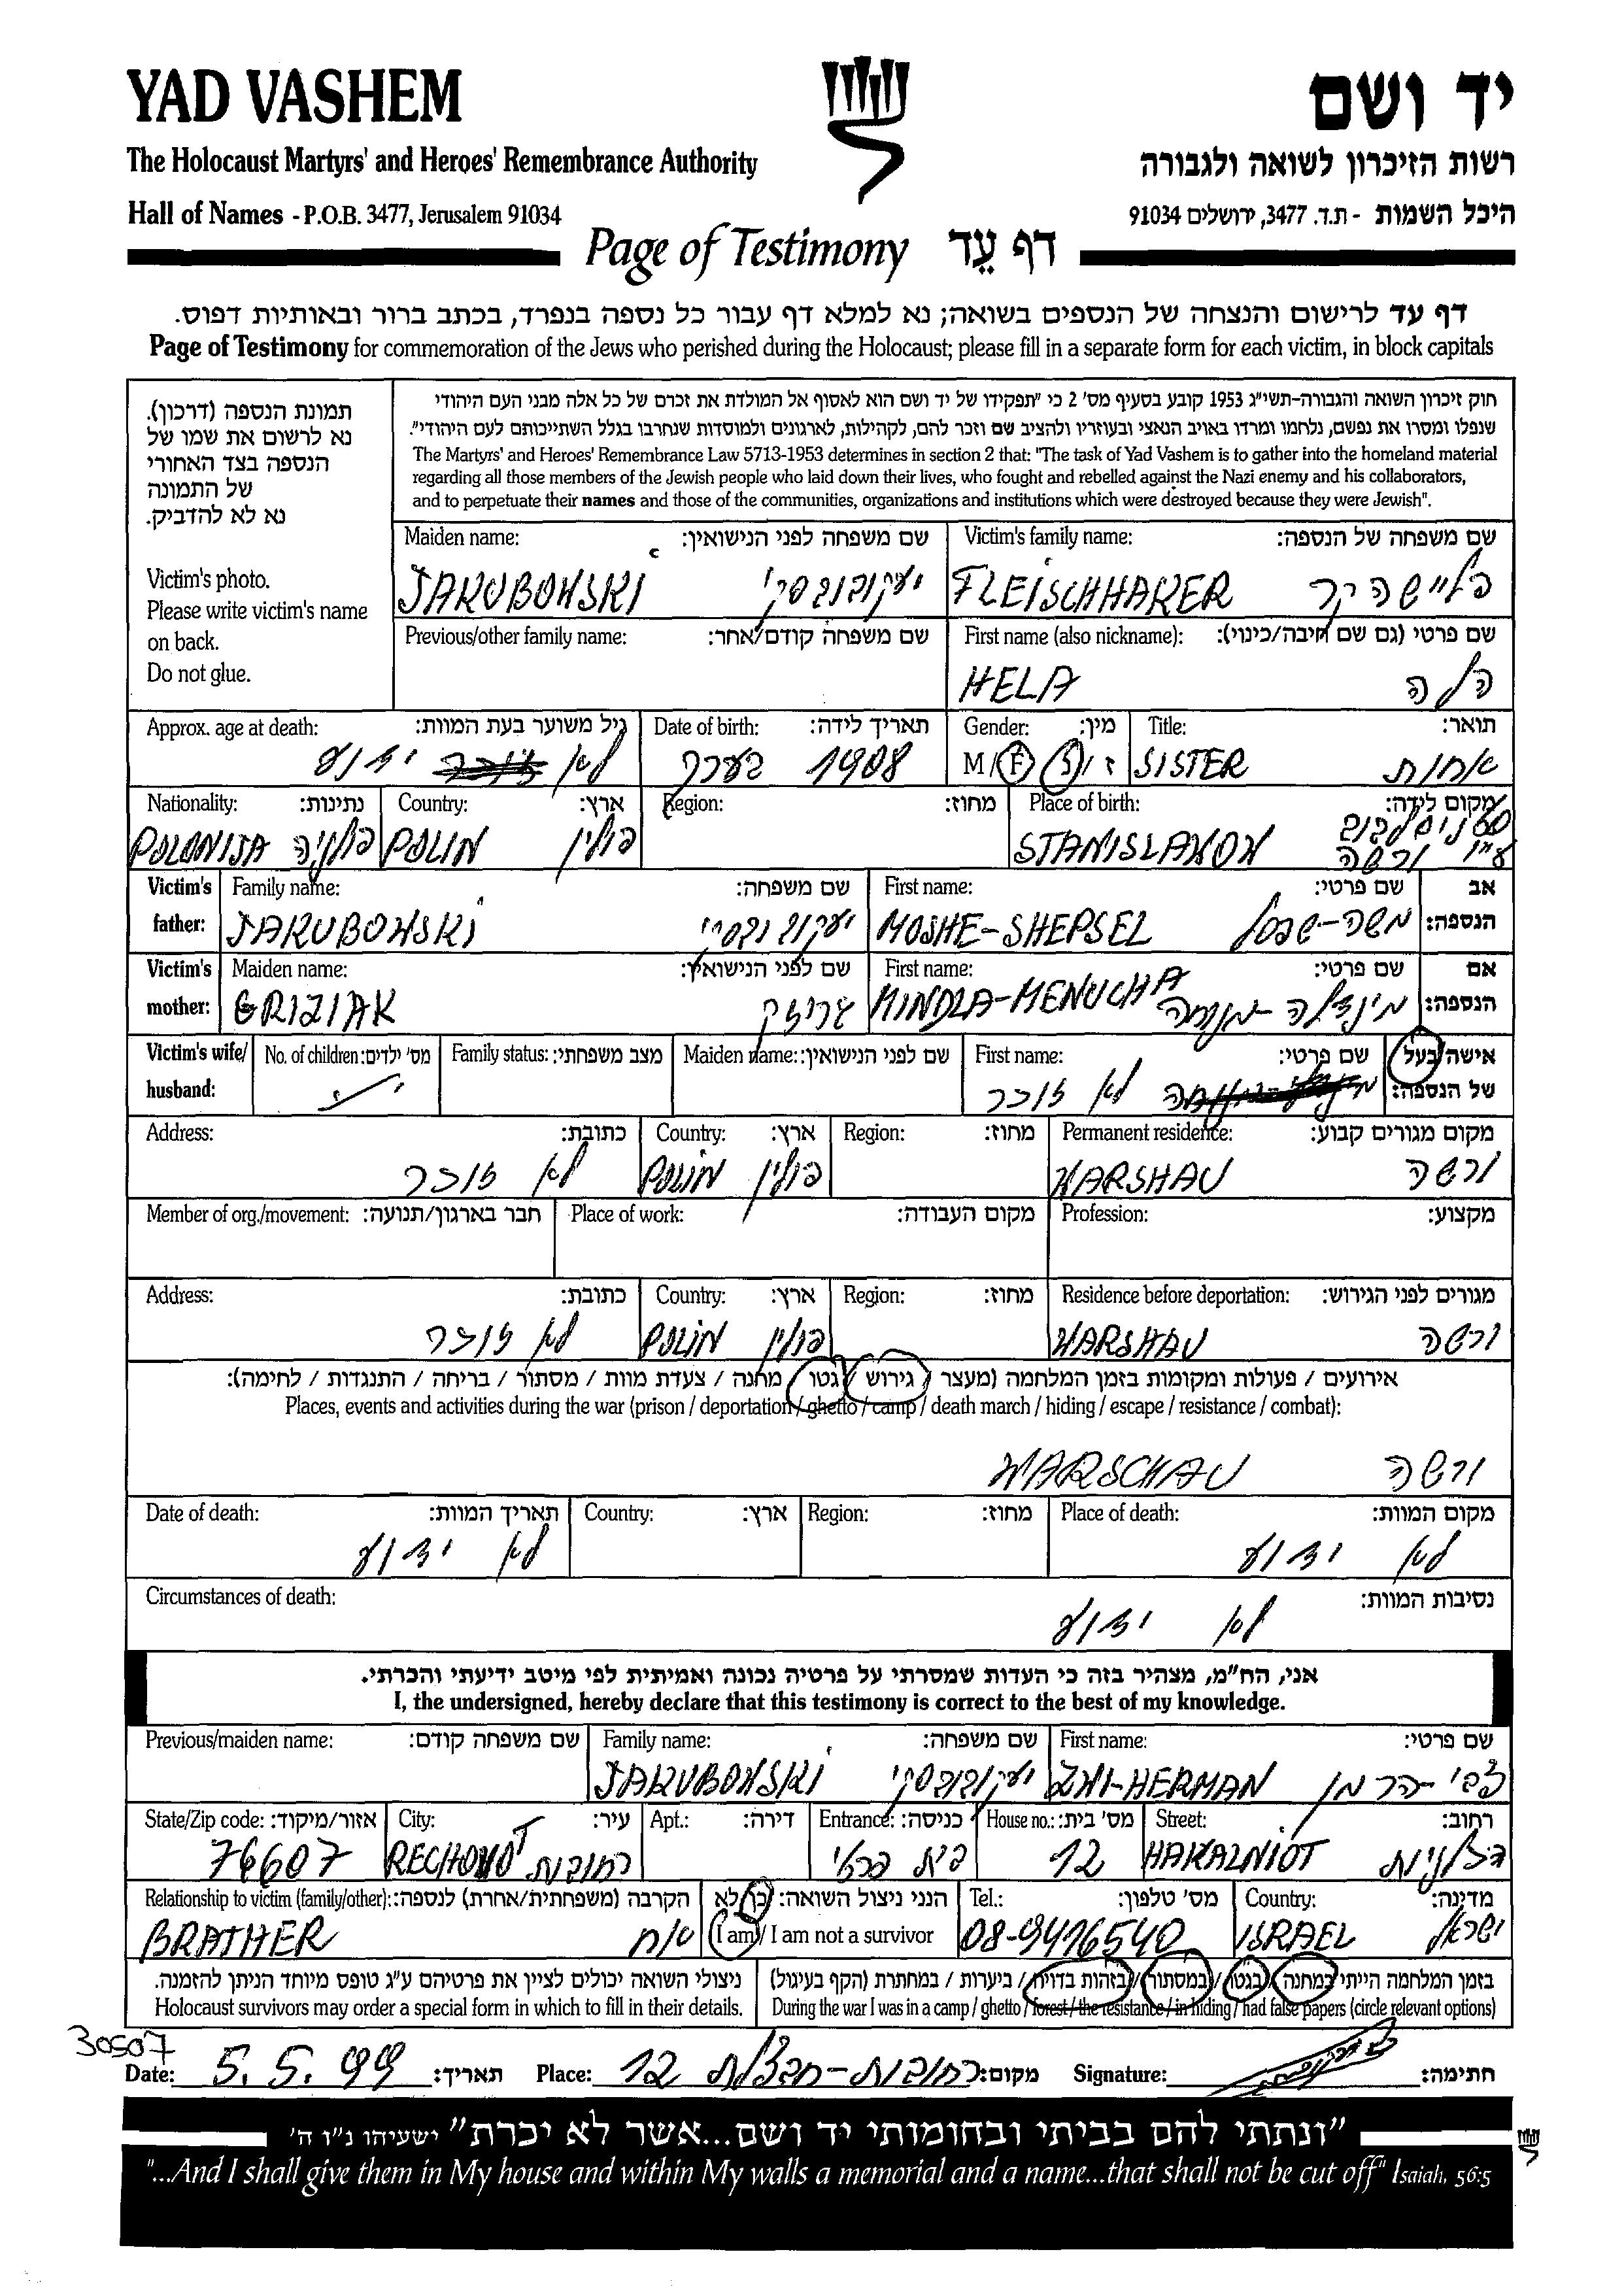 YAD VASHEM
יד ושם
The Holocaust Martyrs' and Heroes' Remembrance Authority
רשות הזיכרון לשואה ולגבורה
Hall of Names - P.O.B. 3477, Jerusalem 91034
היכל השמות - ת.ד. 3477, ירושלים 91034
Page of Testimony דף עֵד
דף עד לרישום והנצחה של הנספים בשואה; נא למלא דף עבור כל נספה בנפרד, בכתב ברור ובאותיות דפוס.
Page of Testimony for commemoration of the Jews who perished during the Holocaust; please fill in a separate form for each victim, in block capitals
תמונת הנספה (דרכון).
נא לרשום את שמו של
הנספה בצד האחורי
של התמונה
נא לא להדביק.
Victim's photo.
Please write victim's name
on back.
Do not glue.
חוק זיכרון השואה והגבורה-תשי"ג 1953 קובע בסעיף מס' 2 כי "תפקידו של יד ושם הוא לאסוף אל המולדת את זכרם של כל אלה מבני העם היהודי
שנפלו ומסרו את נפשם, נלחמו ומרדו באויב הנאצי ובעוזריו ולהציב שם וזכר להם, לקהילות, לארגונים ולמוסדות שנחרבו בגלל השתייכותם לעם היהודי".
The Martyrs' and Heroes' Remembrance Law 5713-1953 determines in section 2 that: "The task of Yad Vashem is to gather into the homeland material
regarding all those members of the Jewish people who laid down their lives, who fought and rebelled against the Nazi enemy and his collaborators,
and to perpetuate their names and those of the communities, organizations and institutions which were destroyed because they were Jewish".
Maiden name: שם משפחה לפני הנישואין:
JAKUBOWSKI יעקובובסקי
Victim's family name: שם משפחה של הנספה:
FLEISCHHAKER פליישהקר
Previous/other family name: שם משפחה קודם/אחר:
First name (also nickname): שם פרטי (גם שם חיבה/כינוי):
HELA הלה
Approx. age at death: גיל משוער בעת המוות:
לא ידוע
Date of birth: תאריך לידה:
1908 בערך
Gender: מין:
M / F ז / נ
Title: תואר:
SISTER אחות
Nationality: נתינות:
POLONIJA פולניה
Country: ארץ:
POLIN פולין
Region: מחוז:
Place of birth: מקום לידה:
STANISLAWOW סטניסלבוב
ע"י ורשה
Victim's father: אב הנספה:
Family name: שם משפחה:
JAKUBOWSKI יעקובובסקי
First name: שם פרטי:
MOSHE-SHEPSEL משה-שפסל
Victim's mother: אם הנספה:
Maiden name: שם לפני הנישואין:
GRIZIAK גריזק
First name: שם פרטי:
MINDLA-MENUCHA מינדלה-מנוחה
Victim's wife/ husband: אישה/בעל של הנספה:
No. of children: מס' ילדים:
Family status: מצב משפחתי:
Maiden name: שם לפני הנישואין:
First name: שם פרטי:
לא זוכר
Address: כתובת:
לא זוכר
Country: ארץ:
POLIN פולין
Region: מחוז:
Permanent residence: מקום מגורים קבוע:
WARSHAU ורשה
Member of org./movement: חבר בארגון/תנועה:
Place of work: מקום העבודה:
Profession: מקצוע:
Address: כתובת:
לא זוכר
Country: ארץ:
POLIN פולין
Region: מחוז:
Residence before deportation: מגורים לפני הגירוש:
WARSHAU ורשה
אירועים / פעולות ומקומות בזמן המלחמה (מעצר / גירוש / גטו / מחנה / צעדת מוות / מסתור / בריחה / התנגדות / לחימה):
Places, events and activities during the war (prison / deportation / ghetto / camp / death march / hiding / escape / resistance / combat):
WARSCHAU ורשה
Date of death: תאריך המוות:
לא ידוע
Country: ארץ:
Region: מחוז:
Place of death: מקום המוות:
לא ידוע
Circumstances of death: נסיבות המוות:
לא ידוע
אני, הח"מ, מצהיר בזה כי העדות שמסרתי על פרטיה נכונה ואמיתית לפי מיטב ידיעתי והכרתי.
I, the undersigned, hereby declare that this testimony is correct to the best of my knowledge.
Previous/maiden name: שם משפחה קודם:
Family name: שם משפחה:
JAKUBOWSKI יעקובובסקי
First name: שם פרטי:
ZWI-HERMAN צבי-הרמן
State/Zip code: אזור/מיקוד:
76607
City: עיר:
RECHOVOT רחובות
Apt.: דירה:
Entrance: כניסה:
בית פרטי
House no.: מס' בית:
12
Street: רחוב:
HAKALNIOT
Relationship to victim (family/other): הקרבה (משפחתית/אחרת) לנספה:
BRATHER אח
הנני ניצול השואה: כן/לא
I am / I am not a survivor
Tel.: מס' טלפון:
08-9416540
Country: מדינה:
ISRAEL ישראל
ניצולי השואה יכולים לציין את פרטיהם ע"ג טופס מיוחד הניתן להזמנה.
Holocaust survivors may order a special form in which to fill in their details.
בזמן המלחמה הייתי במחנה / בגטו / במסתור / בזהות בדויה / ביערות / במחתרת (הקף בעיגול)
During the war I was in a camp / ghetto / forest / the resistance / in hiding / had false papers (circle relevant options)
30507
Date: 5.5.99 תאריך:
Place: 12 רחובות- מקום:
Signature: חתימה:
"ונתתי להם בביתי ובחומותי יד ושם...אשר לא יכרת" ישעיהו נ"ו ה'
"...And I shall give them in My house and within My walls a memorial and a name...that shall not be cut off" Isaiah, 56:5